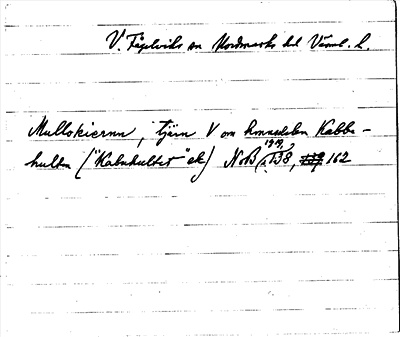 V. Fågelviks sn Nordmarks hd Värml. l.
Mullokiernn, tjärn V om hemmadelen Kabbe-
hulten ("Kabuhultet" ek) NoB 1919, s. 138, 162